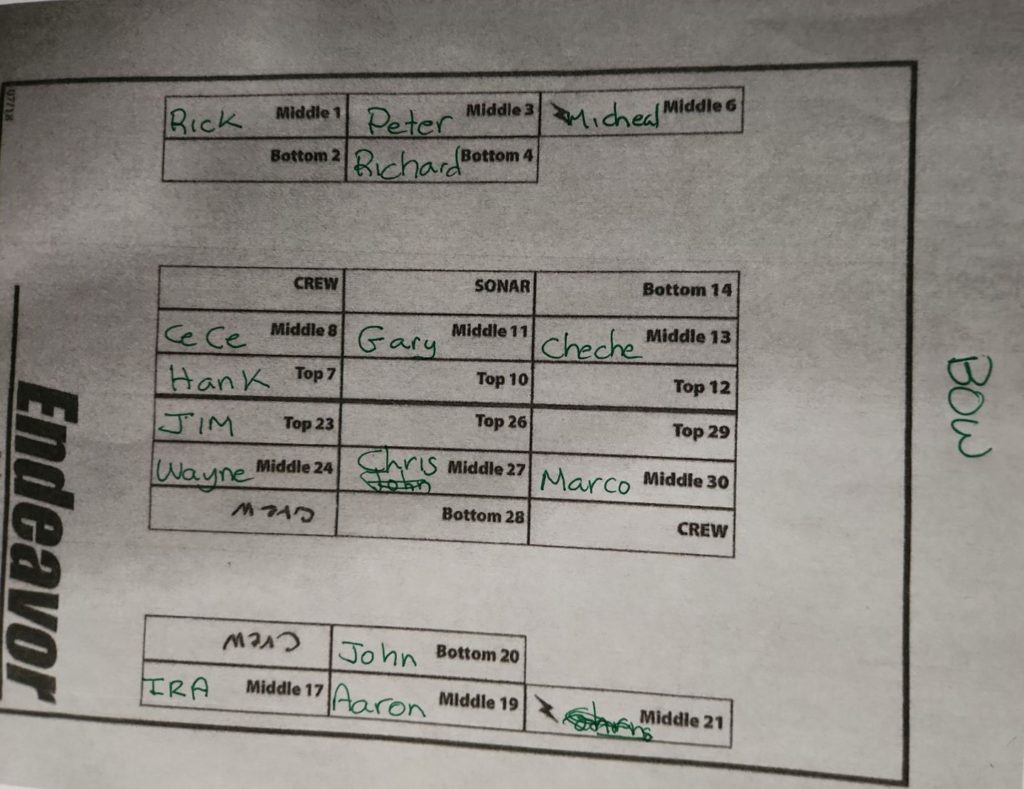 07/18
Rick Middle 1 Peter Middle 3 Micheal Middle 6
Bottom 2 Richard Bottom 4
CREW SONAR Bottom 14
CeCe Middle 8 Gary Middle 11 Cheche Middle 13
Hank Top 7 Top 10 Top 12
JIM Top 23 Top 26 Top 29
Wayne Middle 24 Chris John Middle 27 Marco Middle 30
Crew Bottom 28 CREW
Crew John Bottom 20
IRA Middle 17 Aaron Middle 19 Middle 21
Endeavor
BOW